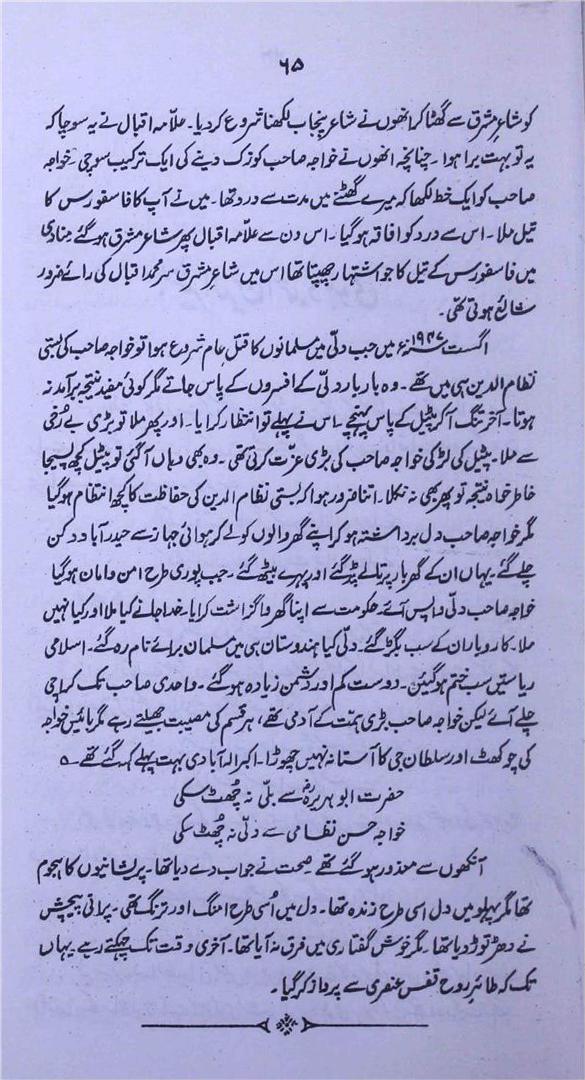 ۶۵
کو شاعرِ مشرق سے گھٹا کر انھوں نے شاعرِ پنجاب لکھنا شروع کر دیا۔ علّامہ اقبال نے یہ سوچا کہ
یہ تو بہت برا ہوا۔ چنانچہ انھوں نے خواجہ صاحب کو زک دینے کی ایک ترکیب سوچی۔ خواجہ
صاحب کو ایک خط لکھا کہ میرے گھٹنے میں مدت سے درد تھا۔ میں نے آپ کا فاسفورس کا
تیل ملا۔ اس سے درد کو افاقہ ہو گیا۔ اس دن سے علّامہ اقبال پھر شاعرِ مشرق ہو گئے منادی
میں فاسفورس کے تیل کا جو اشتہار چھپتا تھا اس میں شاعرِ مشرق سر محمد اقبال کی رائے ضرور
شائع ہوتی تھی۔
اگست ۱۹۴۷ء میں جب دلّی میں مسلمانوں کا قتلِ عام شروع ہوا تو خواجہ صاحب کی بستی
نظام الدین ہی میں تھے۔ وہ بار بار دلّی کے افسروں کے پاس جاتے مگر کوئی مفید نتیجہ برآمد نہ
ہوتا۔ آخر تنگ آ کر پٹیل کے پاس پہنچے۔ اس نے پہلے تو انتظار کرایا۔ اور پھر ملا تو بڑی بے رُخی
سے ملا۔ پٹیل کی لڑکی خواجہ صاحب کی بڑی عزت کرتی تھی۔ وہ بھی وہاں آ گئی تو پٹیل کچھ پسیجا
خاطر خواہ نتیجہ تو پھر بھی نہ نکلا۔ اتنا ضرور ہوا کہ بستی نظام الدین کی حفاظت کا کچھ انتظام ہو گیا
مگر خواجہ صاحب دل برداشتہ ہو کر اپنے گھر والوں کو لے کر ہوائی جہاز سے حیدرآباد دکن
چلے گئے۔ یہاں ان کے گھر بار پر تالے پڑ گئے اور پہرے بیٹھ گئے۔ جب پوری طرح امن و امان ہو گیا
خواجہ صاحب دلّی واپس آئے۔ حکومت سے اپنا گھر واگزاشت کرایا۔ خدا جانے کیا ملا اور کیا نہیں
ملا۔ کاروبار ان کے سب بگڑ گئے۔ دلّی کیا ہندوستان ہی میں مسلمان برائے نام رہ گئے۔ اسلامی
ریاستیں سب ختم ہو گئیں۔ دوست کم اور دشمن زیادہ ہو گئے۔ واحدی صاحب تک کراچی
چلے آئے لیکن خواجہ صاحب بڑی ہمّت کے آدمی تھے، ہر قسم کی مصیبت جھیلتے رہے مگر بائیس خواجہ
کی چوکھٹ اور سلطان جی کا آستانہ نہیں چھوڑا۔ اکبر الہ آبادی بہت پہلے کہہ گئے تھے۔ ؎
حضرت ابوہریرہؓ سے بلّی نہ چُھٹ سکی
خواجہ حسن نظامی سے دلّی نہ چُھٹ سکی
آنکھوں سے معذور ہو گئے تھے۔ صحت نے جواب دے دیا تھا۔ پریشانیوں کا ہجوم
تھا مگر پہلو میں دل اسی طرح زندہ تھا۔ دل میں اُسی طرح امنگ اور ترنگ تھی۔ پرانی پیچش
نے دھڑ توڑ دیا تھا۔ مگر خوش گفتاری میں فرق نہ آیا تھا۔ آخری وقت تک چہکتے رہے یہاں
تک کہ طائرِ روح قفسِ عنصری سے پرواز کر گیا۔